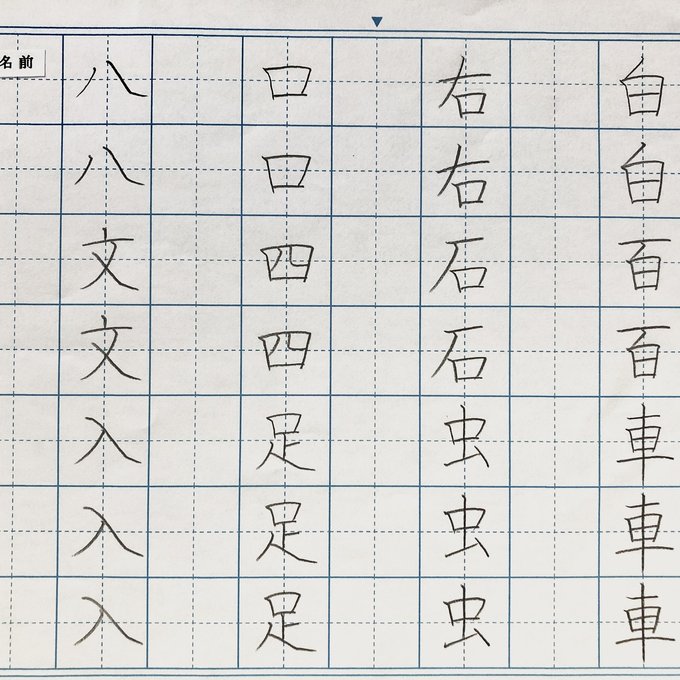 白白百百車車車
右右石石虫虫虫
口口四四足足足
八八文文入入入
名前